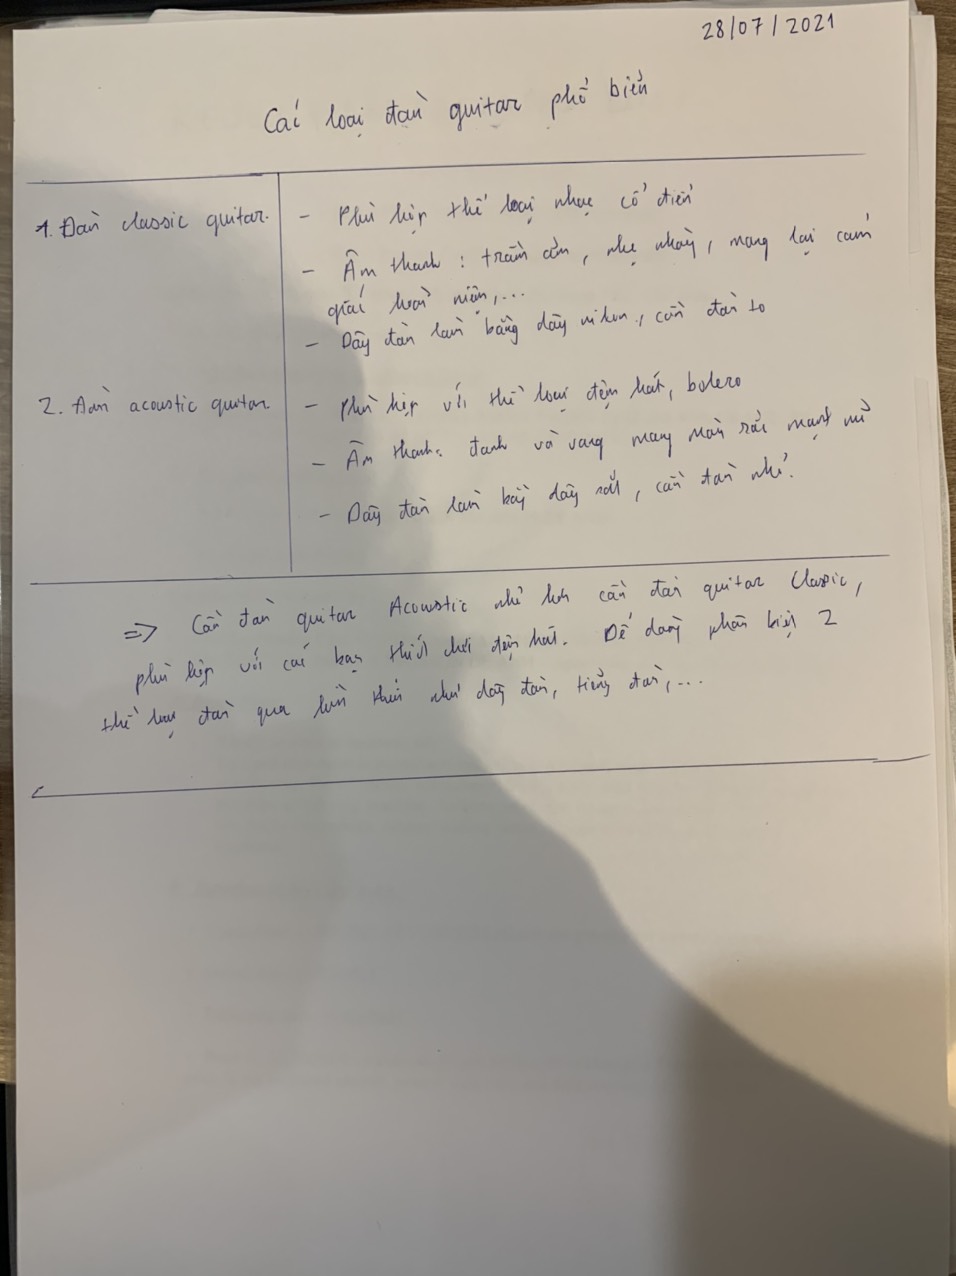 28/07/2021
Các loại đàn guitar phổ biến
1. Đàn classic guitar.
- Phù hợp thể loại nhạc cổ điển
- Âm thanh: trầm ấm, nhẹ nhàng, mang lại cảm
giác hoài niệm,...
- Dây đàn làm bằng dây nilon, cần đàn to
2. Đàn acoustic guitar
- Phù hợp với thể loại đệm hát, bolero
- Âm thanh: đanh và vang mang màu sắc mạnh mẽ
- Dây đàn làm bằng dây sắt, cần đàn nhỏ.
=> Cần đàn guitar Acoustic nhỏ hơn cần đàn guitar Classic,
phù hợp với các bạn thích chơi đệm hát. Dễ dàng phân biệt 2
thể loại đàn qua hình thức như dây đàn, tiếng đàn,...